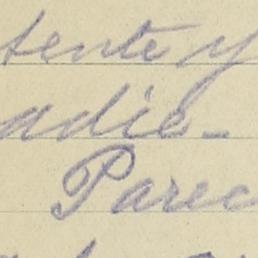 tente y
adie-
Parec